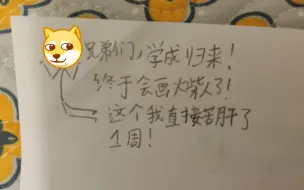 兄弟们,学成归来!
终于会画火柴人了!
这个我直接苦肝了
1周!